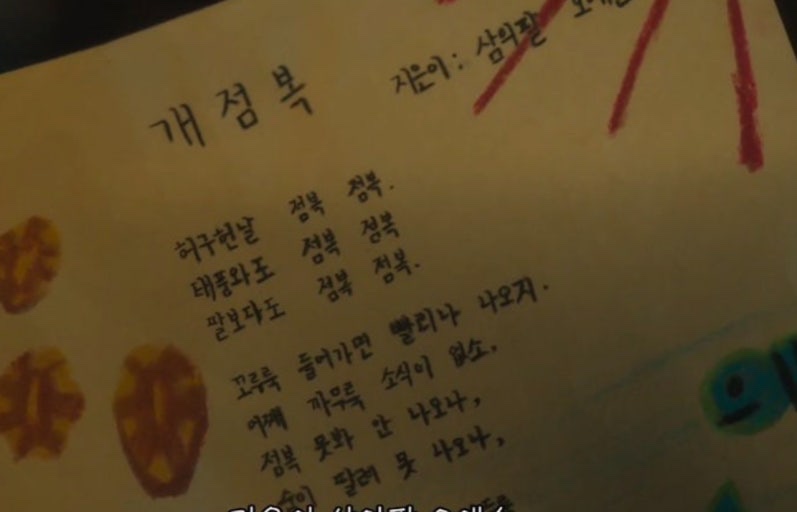 개점복
지은이: 삼의딸
허구헌날 점복 점복.
태풍와도 점복 점복
딸보다도 점복 점복.
꼬루룩 들어가면 빨리나 나오지.
어째 까무룩 소식이 없소.
점복 못봐 안 나오나,
숨이 딸려 못 나오나,